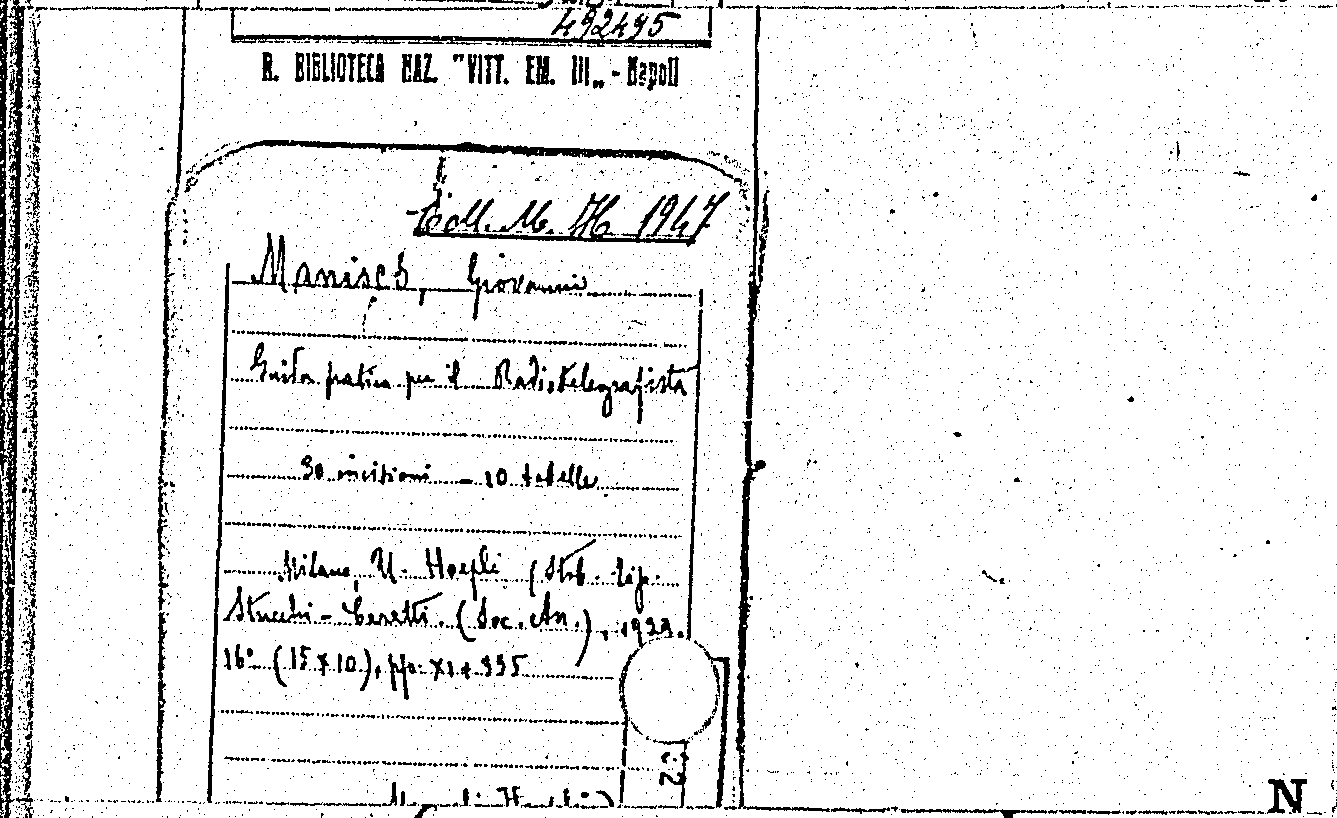 492495
R. BIBLIOTECA NAZ. "VITT. EM. III„ - Napoli
Coll. M. H 1947
Manisch, Giovanni
Guida pratica per il Radiotelegrafista
30 incisioni - 10 tabelle
Milano, U. Hoepli (Stab. tip.
Stucchi-Ceretti. (Soc. An.),
16° (15x10), pp. XI + 335
N